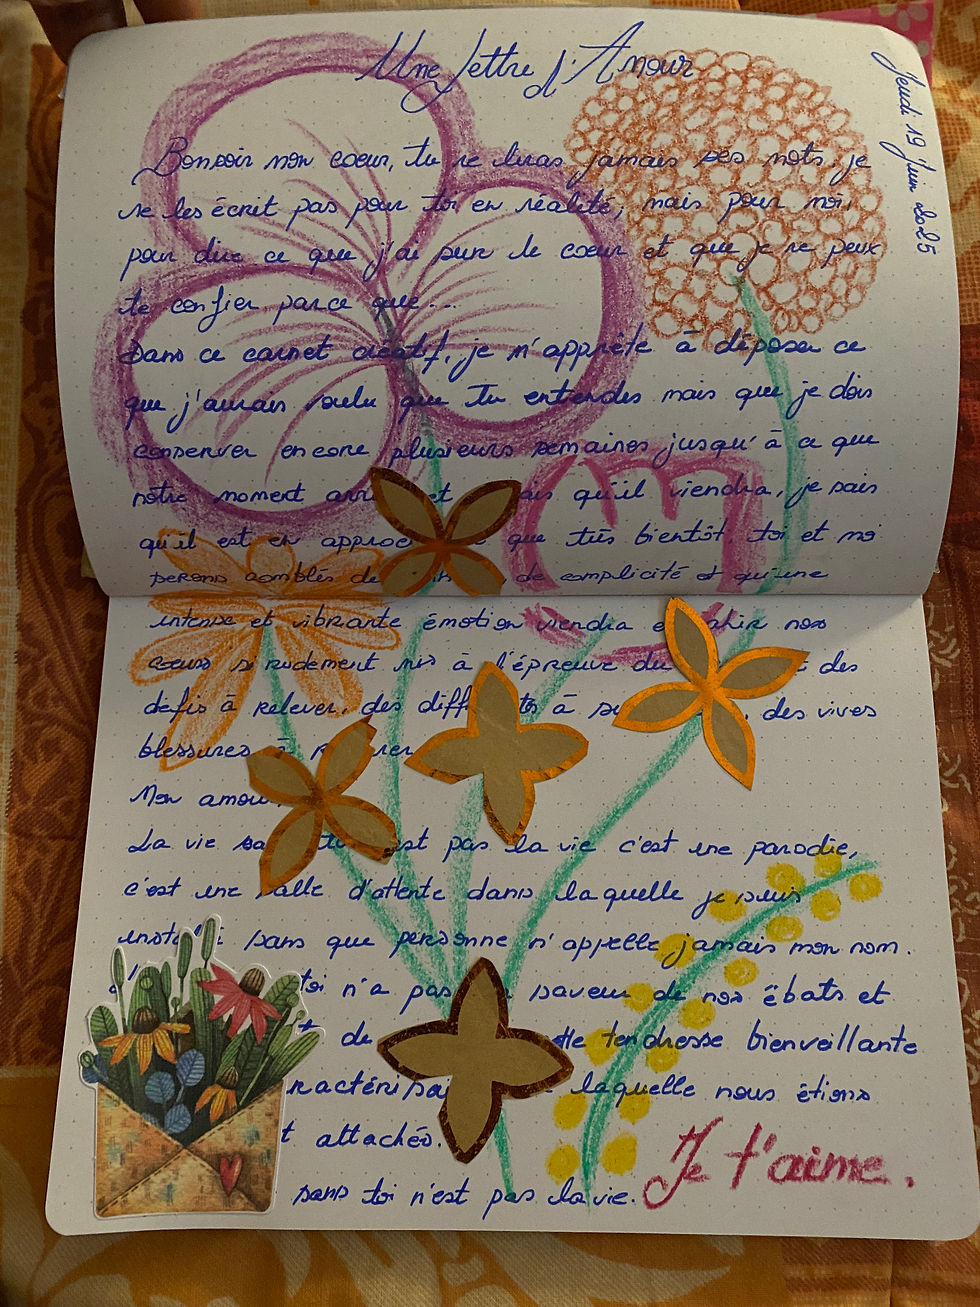 Une lettre d'Amour
Jeudi 19 juin 2025
Bonsoir mon coeur, tu ne liras jamais ses mots, je
ne les écrit pas pour toi en réalité, mais pour moi,
pour dire ce que j'ai sur le coeur et que je ne peux
te confier parce que...
Dans ce carnet créatif, je m'apprête à déposer ce
que j'aurais voulu que tu entendes mais que je dois
conserver encore plusieurs semaines jusqu'à ce que
nôtre moment et qu'il viendra, je sais
qu'il est en que très bientôt, toi et moi
serons comblés de de complicité et qu'une
intense et vibrante émotion viendra nos
coeurs si rudement mis à l'épreuve des
défis à relever, des à , des vives
blessures à
Mon amour
La vie pas la vie c'est une parodie,
c'est une salle d'attente dans laquelle je suis
sans que personne n'appelle jamais mon nom.
toi n'a pas saveur de nos ébats et
de tendresse bienveillante
laquelle nous étions
attachés.
sans toi n'est pas la vie.
Je t'aime.